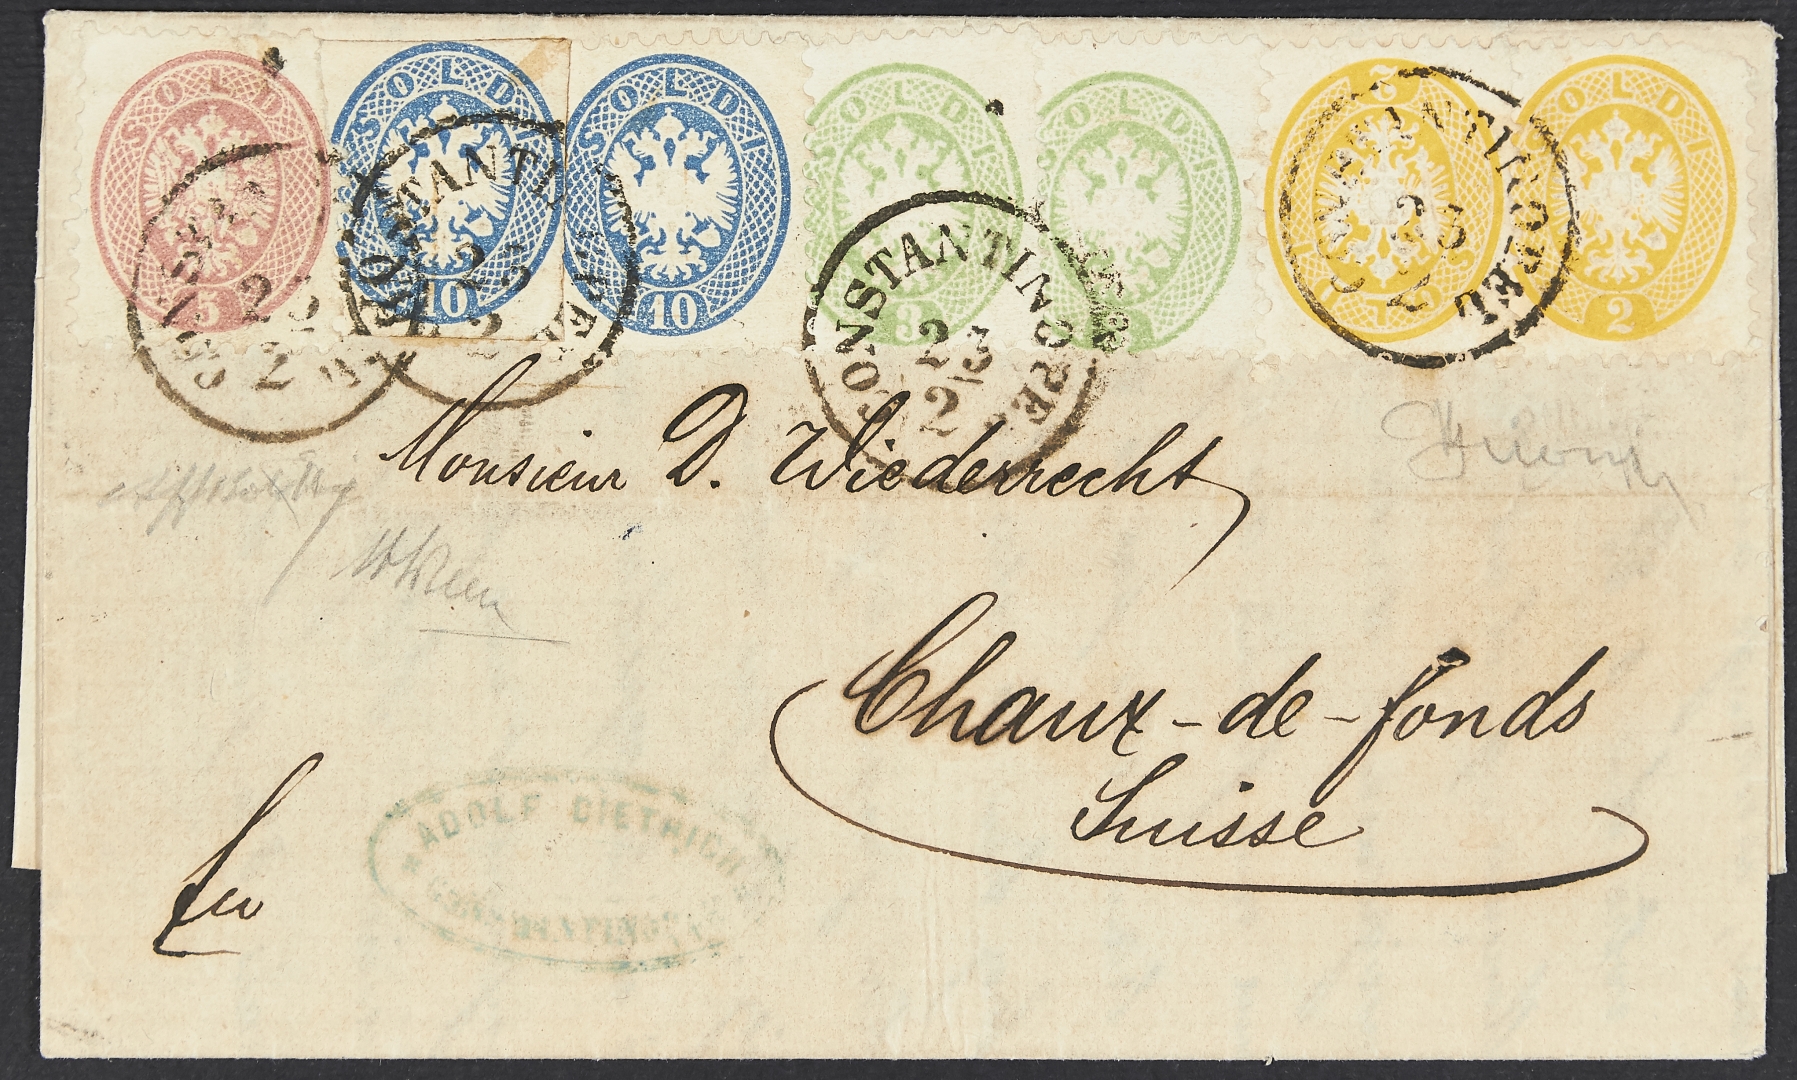 SOLDI 5
SOLDI 10
SOLDI 10
SOLDI 3
SOLDI
SOLDI
SOLDI 2
23
2
CONSTANTINOPEL
23
2
CONSTANTINOPEL
23
2
Monsieur D. Wiederrecht,
Chaux-de-fonds
Suisse
ADOLF DIETRICH
CONSTANTINOPEL